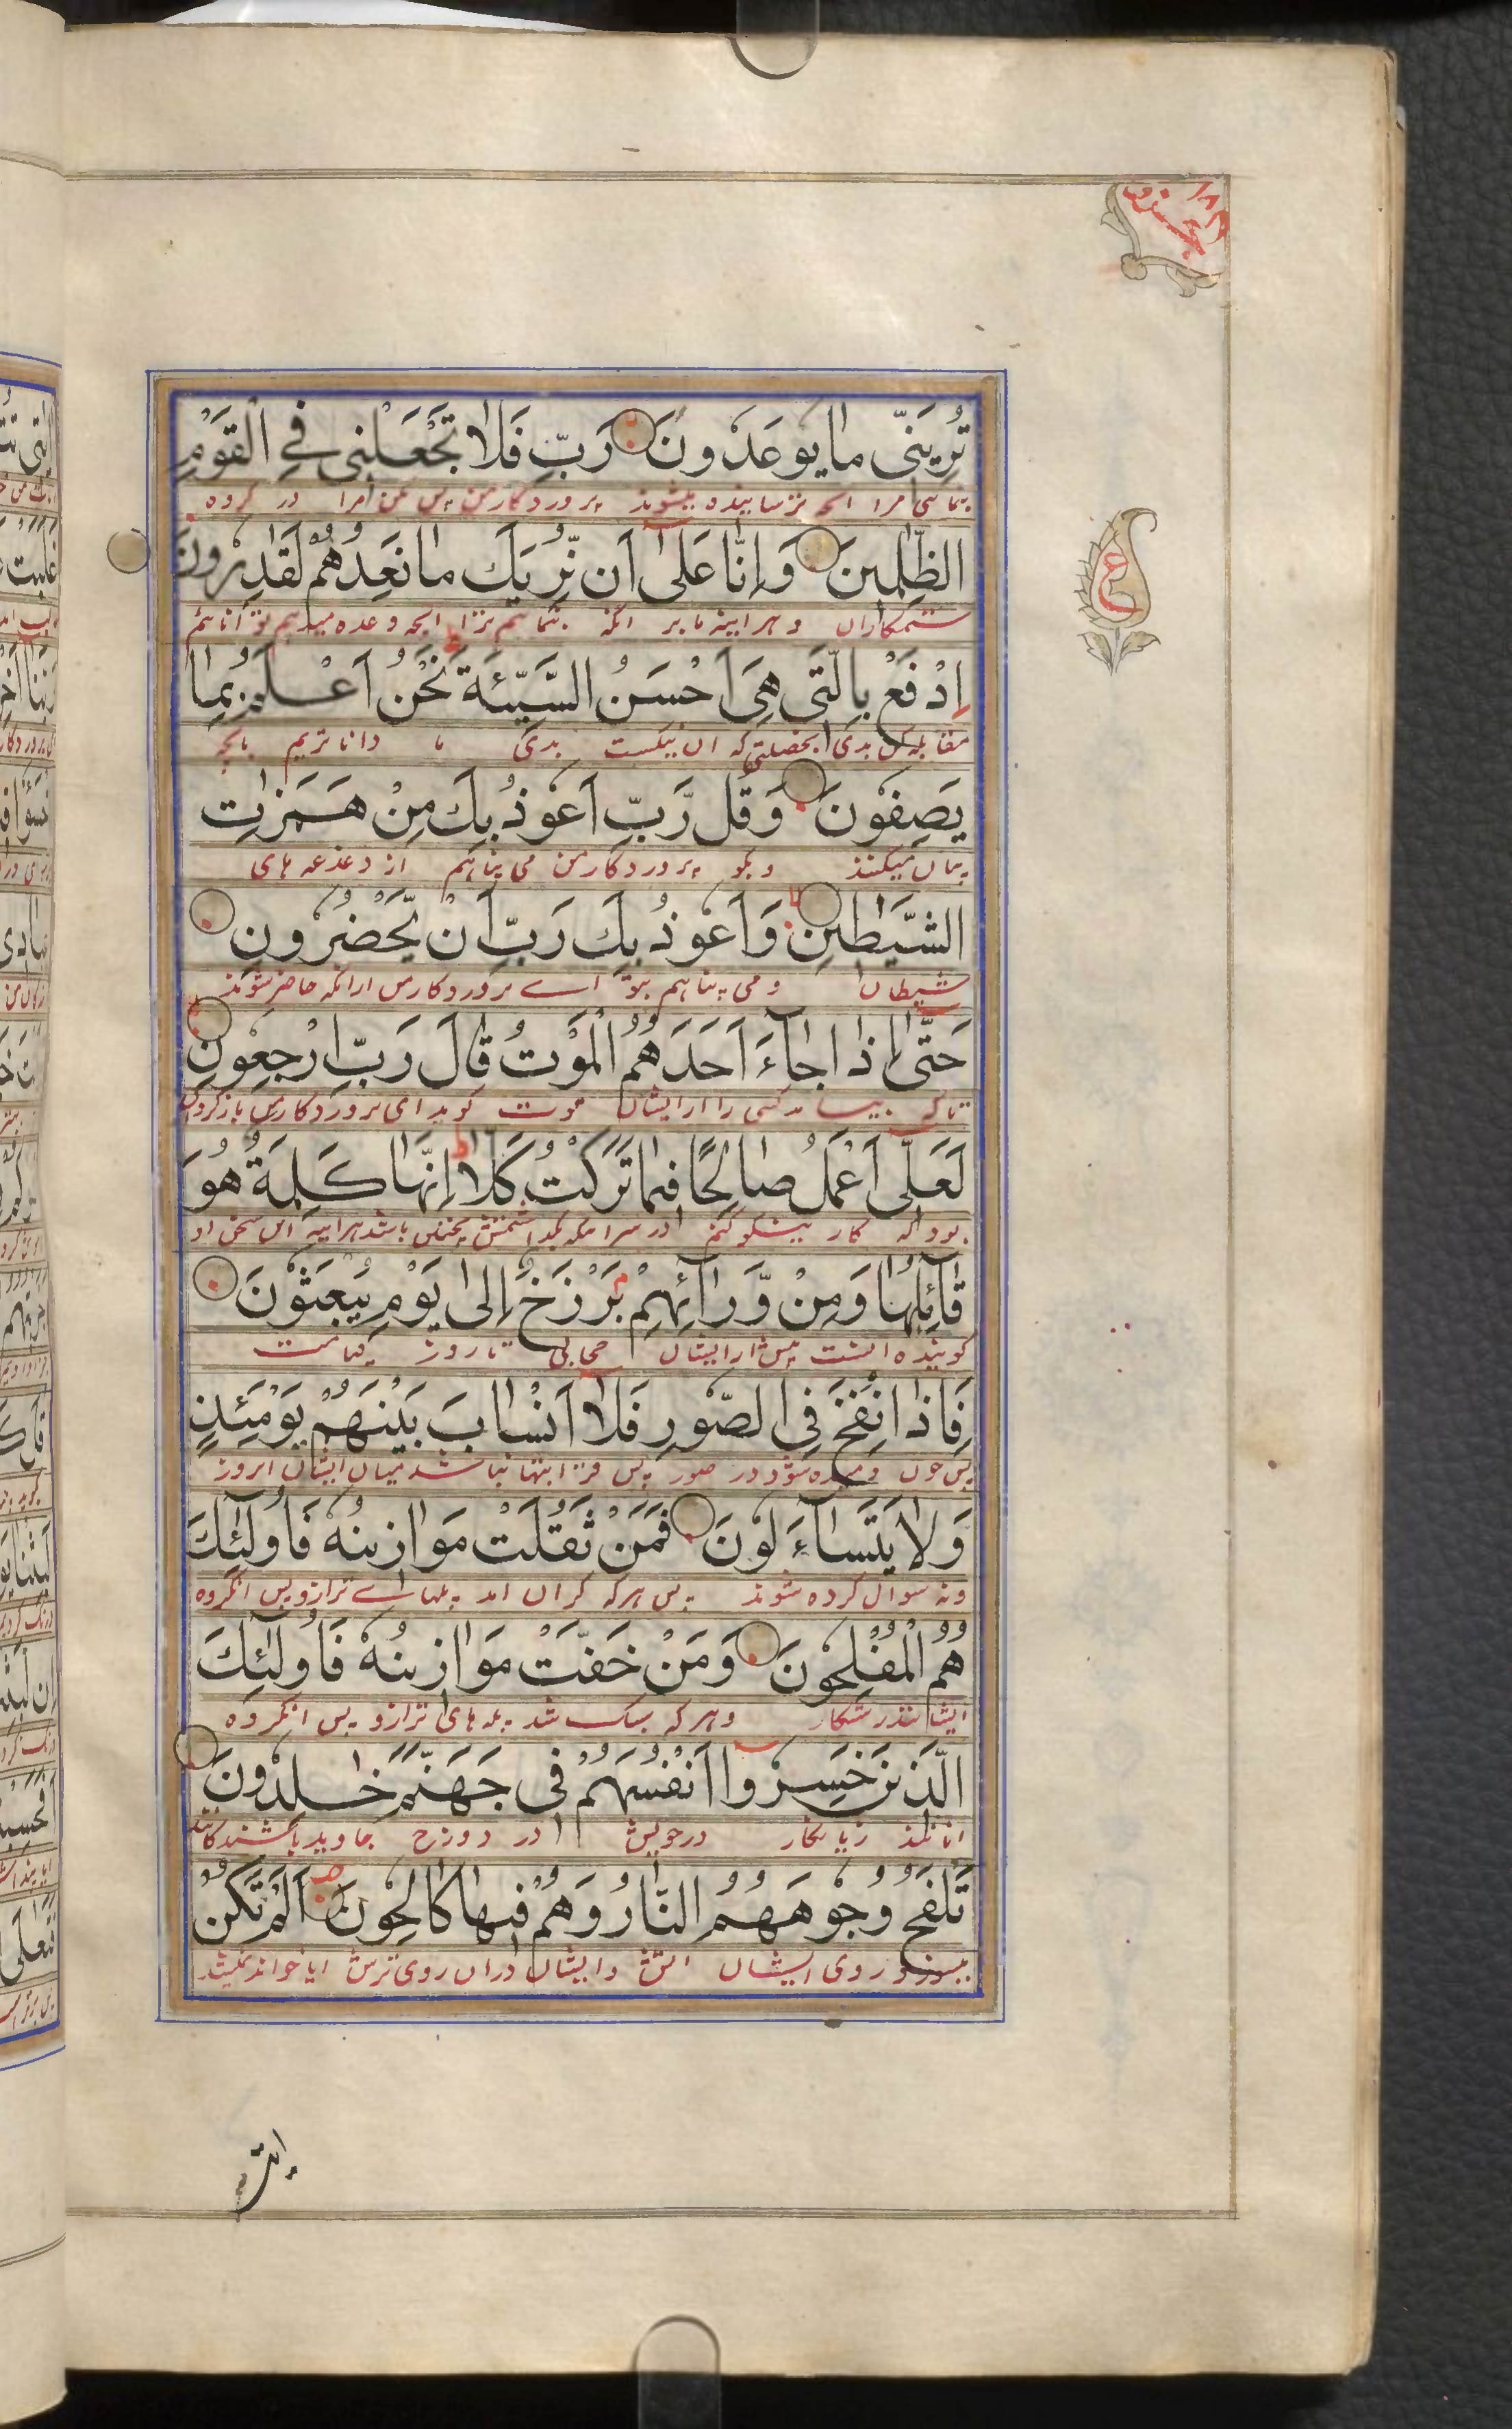 تُرِيَنِّى مَا يُوعَدُونَ رَبِّ فَلَا تَجْعَلْنِى فِى الْقَوْمِ
بنمائی مرا انچه ترسانیده میشوند پروردکار من پس مکن مرا در کروه
الظّٰلِمِينَ وَاِنَّا عَلٰٓى اَنْ نُّرِيَكَ مَا نَعِدُهُمْ لَقٰدِرُونَ
ستمکاران و هرآینه ما بر انکه بنمائیم ترا انچه وعده میدهیم توانائیم
اِدْفَعْ بِالَّتِى هِىَ اَحْسَنُ السَّيِّئَةَ نَحْنُ اَعْلَمُ بِمَا
مقابله کن بدی بخصلتی که ان نیکست بدی ما دانا تریم بانچه
يَصِفُونَ وَقُلْ رَّبِّ اَعُوذُ بِكَ مِنْ هَمَزٰتِ
بیان میکنند و بکو پروردکار من می پناهم از دغدغه های
الشَّيٰطِينِ وَاَعُوذُ بِكَ رَبِّ اَنْ يَّحْضُرُونِ
شیطان و می پناهم بتو اے پروردکار من ازانکه حاضر شوند
حَتّٰٓى اِذَا جَآءَ اَحَدَهُمُ الْمَوْتُ قَالَ رَبِّ ارْجِعُونِ
تا که بیاید کسی را از ایشان موت کوید ای پروردکار من باز کردان
لَعَلِّىٓ اَعْمَلُ صَالِحًا فِيمَا تَرَكْتُ كَلَّا اِنَّهَا كَلِمَةٌ هُوَ
بود که کار نیکو کنم در سرا که بکذاشتمش چنین باشد هرآینه این سخن او
قَآئِلُهَا وَمِنْ وَّرَآئِهِمْ بَرْزَخٌ اِلٰى يَوْمِ يُبْعَثُونَ
کوینده انست پیش از ایشان حجابی تا روز قیامت
فَاِذَا نُفِخَ فِى الصُّورِ فَلَآ اَنْسَابَ بَيْنَهُمْ يَوْمَئِذٍ
پس چون دمیده شود در صور پس قرابتها نباشد میان ایشان امروز
وَلَا يَتَسَآءَلُونَ فَمَنْ ثَقُلَتْ مَوَازِينُهٗ فَاُولٰٓئِكَ
و نه سوال کرده شوند پس هرکه کران امد پلهاے ترازو پس انکروه
هُمُ الْمُفْلِحُونَ وَمَنْ خَفَّتْ مَوَازِينُهٗ فَاُولٰٓئِكَ
ایشانند رستکار و هرکه سبک شد پله های ترازو پس انکروه
الَّذِينَ خَسِرُوٓا اَنْفُسَهُمْ فِى جَهَنَّمَ خٰلِدُونَ
انانند زیانکار در خویش در دوزخ جاوید باشندکانند
تَلْفَحُ وُجُوهَهُمُ النَّارُ وَهُمْ فِيهَا كَالِحُونَ اَلَمْ تَكُنْ
بسوزد روی ایشان اتش و ایشان دران روی ترش ایا خوانده نیست
ع